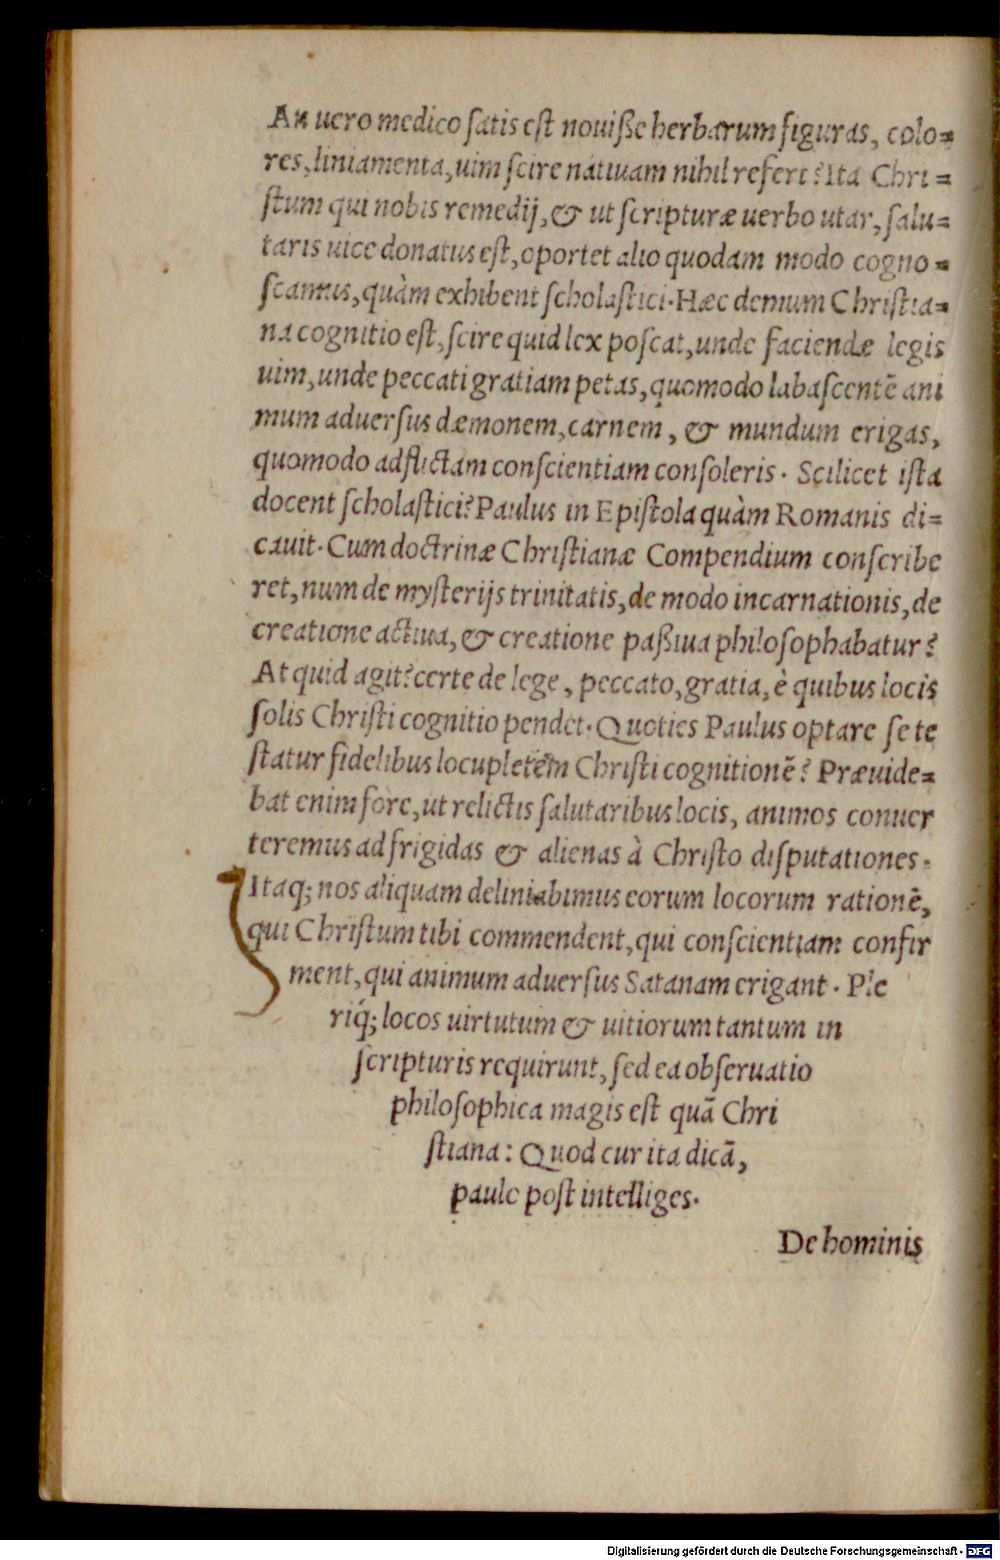 An uero medico satis est nouiße herbarum figuras, colo=
res, liniamenta, uim scire natiuam nihil refert? Ita Chri=
stum qui nobis remedij, & ut scripturæ uerbo utar, salu=
taris uice donatus est, oportet alio quodam modo cogno=
scamus, quàm exhibent scholastici. Hæc demum Christia=
na cognitio est, scire quid lex poscat, unde faciendæ legis
uim, unde peccati gratiam petas, quomodo labascentē ani
mum aduersus dæmonem, carnem, & mundum erigas,
quomodo adflictam conscientiam consoleris. Scilicet ista
docent scholastici? Paulus in Epistola quàm Romanis di=
cauit. Cum doctrinæ Christianæ Compendium conscribe
ret, num de mysterijs trinitatis, de modo incarnationis, de
creatione actiua, & creatione paßiua philosophabatur?
At quid agit? certe de lege, peccato, gratia, è quibus locis
solis Christi cognitio pendet. Quoties Paulus optare se te
statur fidelibus locupletem Christi cognitionē? Præuide=
bat enim fore, ut relictis salutaribus locis, animos conuer
teremus ad frigidas & alienas à Christo disputationes.
Itaq; nos aliquam deliniabimus eorum locorum rationē,
qui Christum tibi commendent, qui conscientiam confir
ment, qui animum aduersus Satanam erigant. Ple
riq́; locos uirtutum & uitiorum tantum in
scripturis requirunt, sed ea obseruatio
philosophica magis est quā Chri
stiana: Quod cur ita dicā,
paulo post intelliges.
De hominis
Digitalisierung gefördert durch die Deutsche Forschungsgemeinschaft - DFG